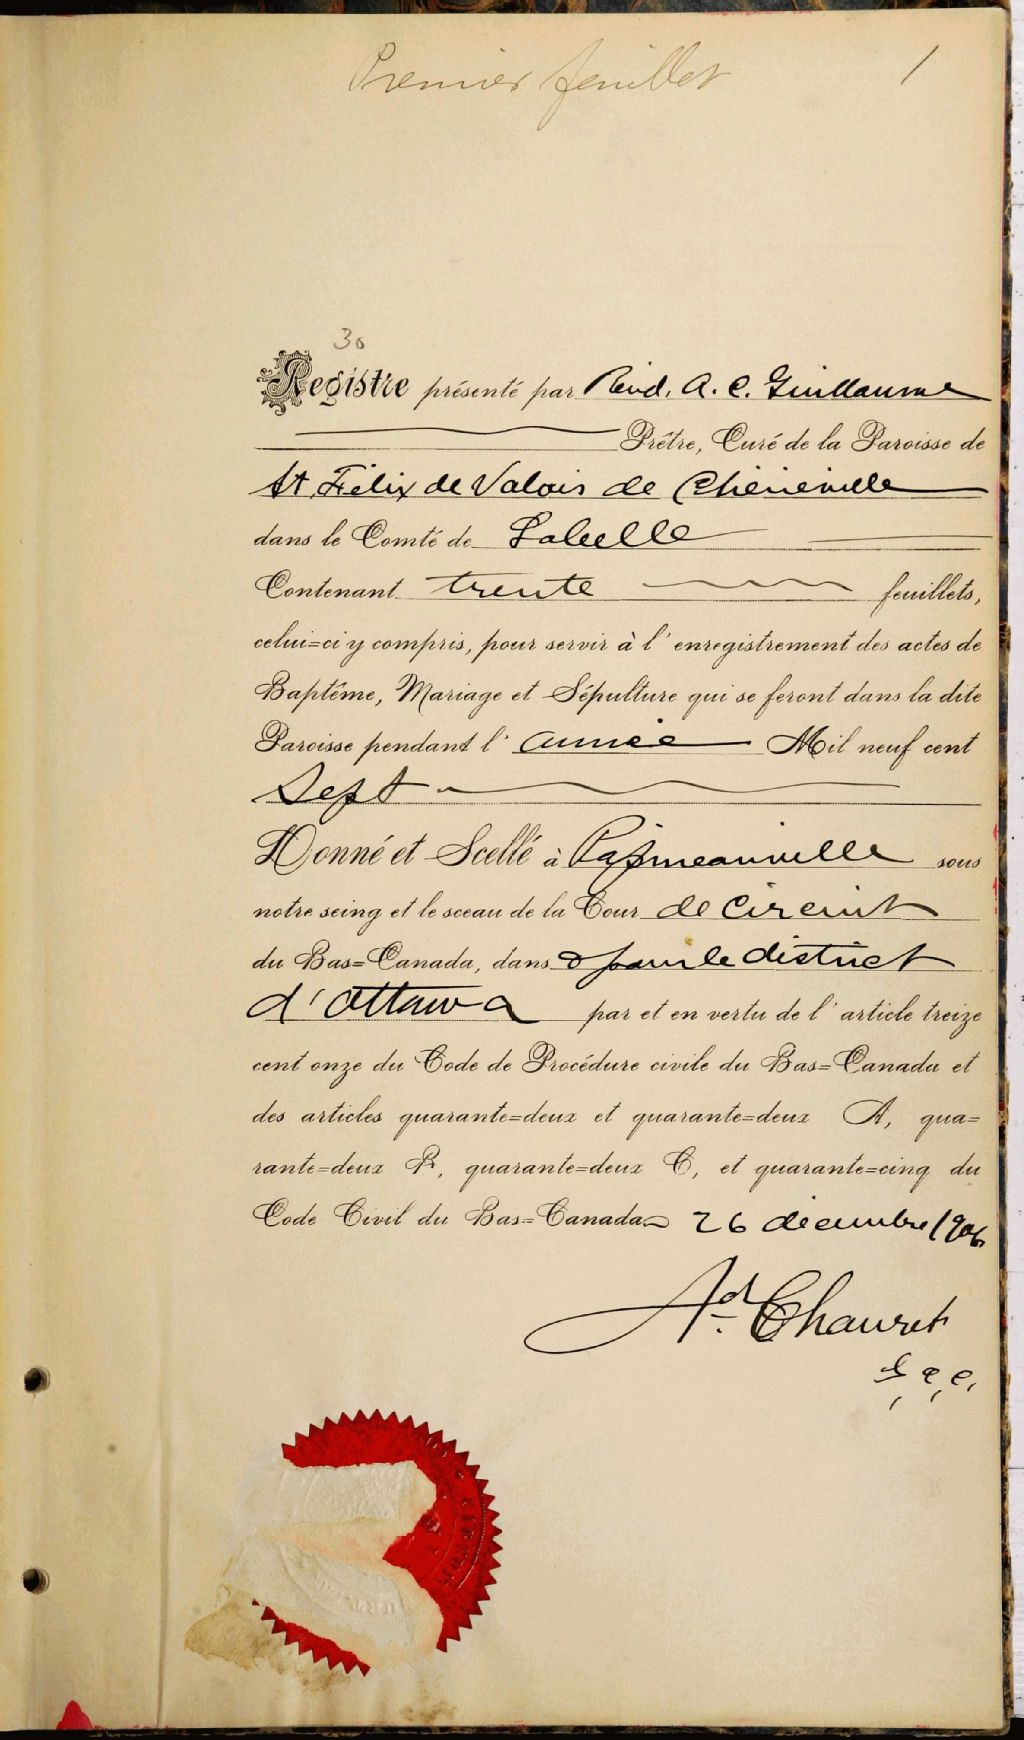 Premier feuillet 1
30
Registre présenté par Révd. A. C. Guillaume
Prêtre, Curé de la Paroisse de
St Félix de Valois de Chénéville
dans le Comté de Labelle
Contenant trente feuillets,
celui=ci y compris, pour servir à l'enregistrement des actes de
Baptême, Mariage et Sépulture qui se feront dans la dite
Paroisse pendant l'année Mil neuf cent
Sept
Donné et Scellé à Papineauville sous
notre seing et le sceau de la Cour de Circuit
du Bas=Canada, dans & pour le district
d'Ottawa par et en vertu de l'article treize
cent onze du Code de Procédure civile du Bas=Canada et
des articles quarante=deux et quarante=deux A, qua=
rante=deux B, quarante=deux C, et quarante=cinq du
Code Civil du Bas=Canada 26 décembre 1906
Ad. Chauret